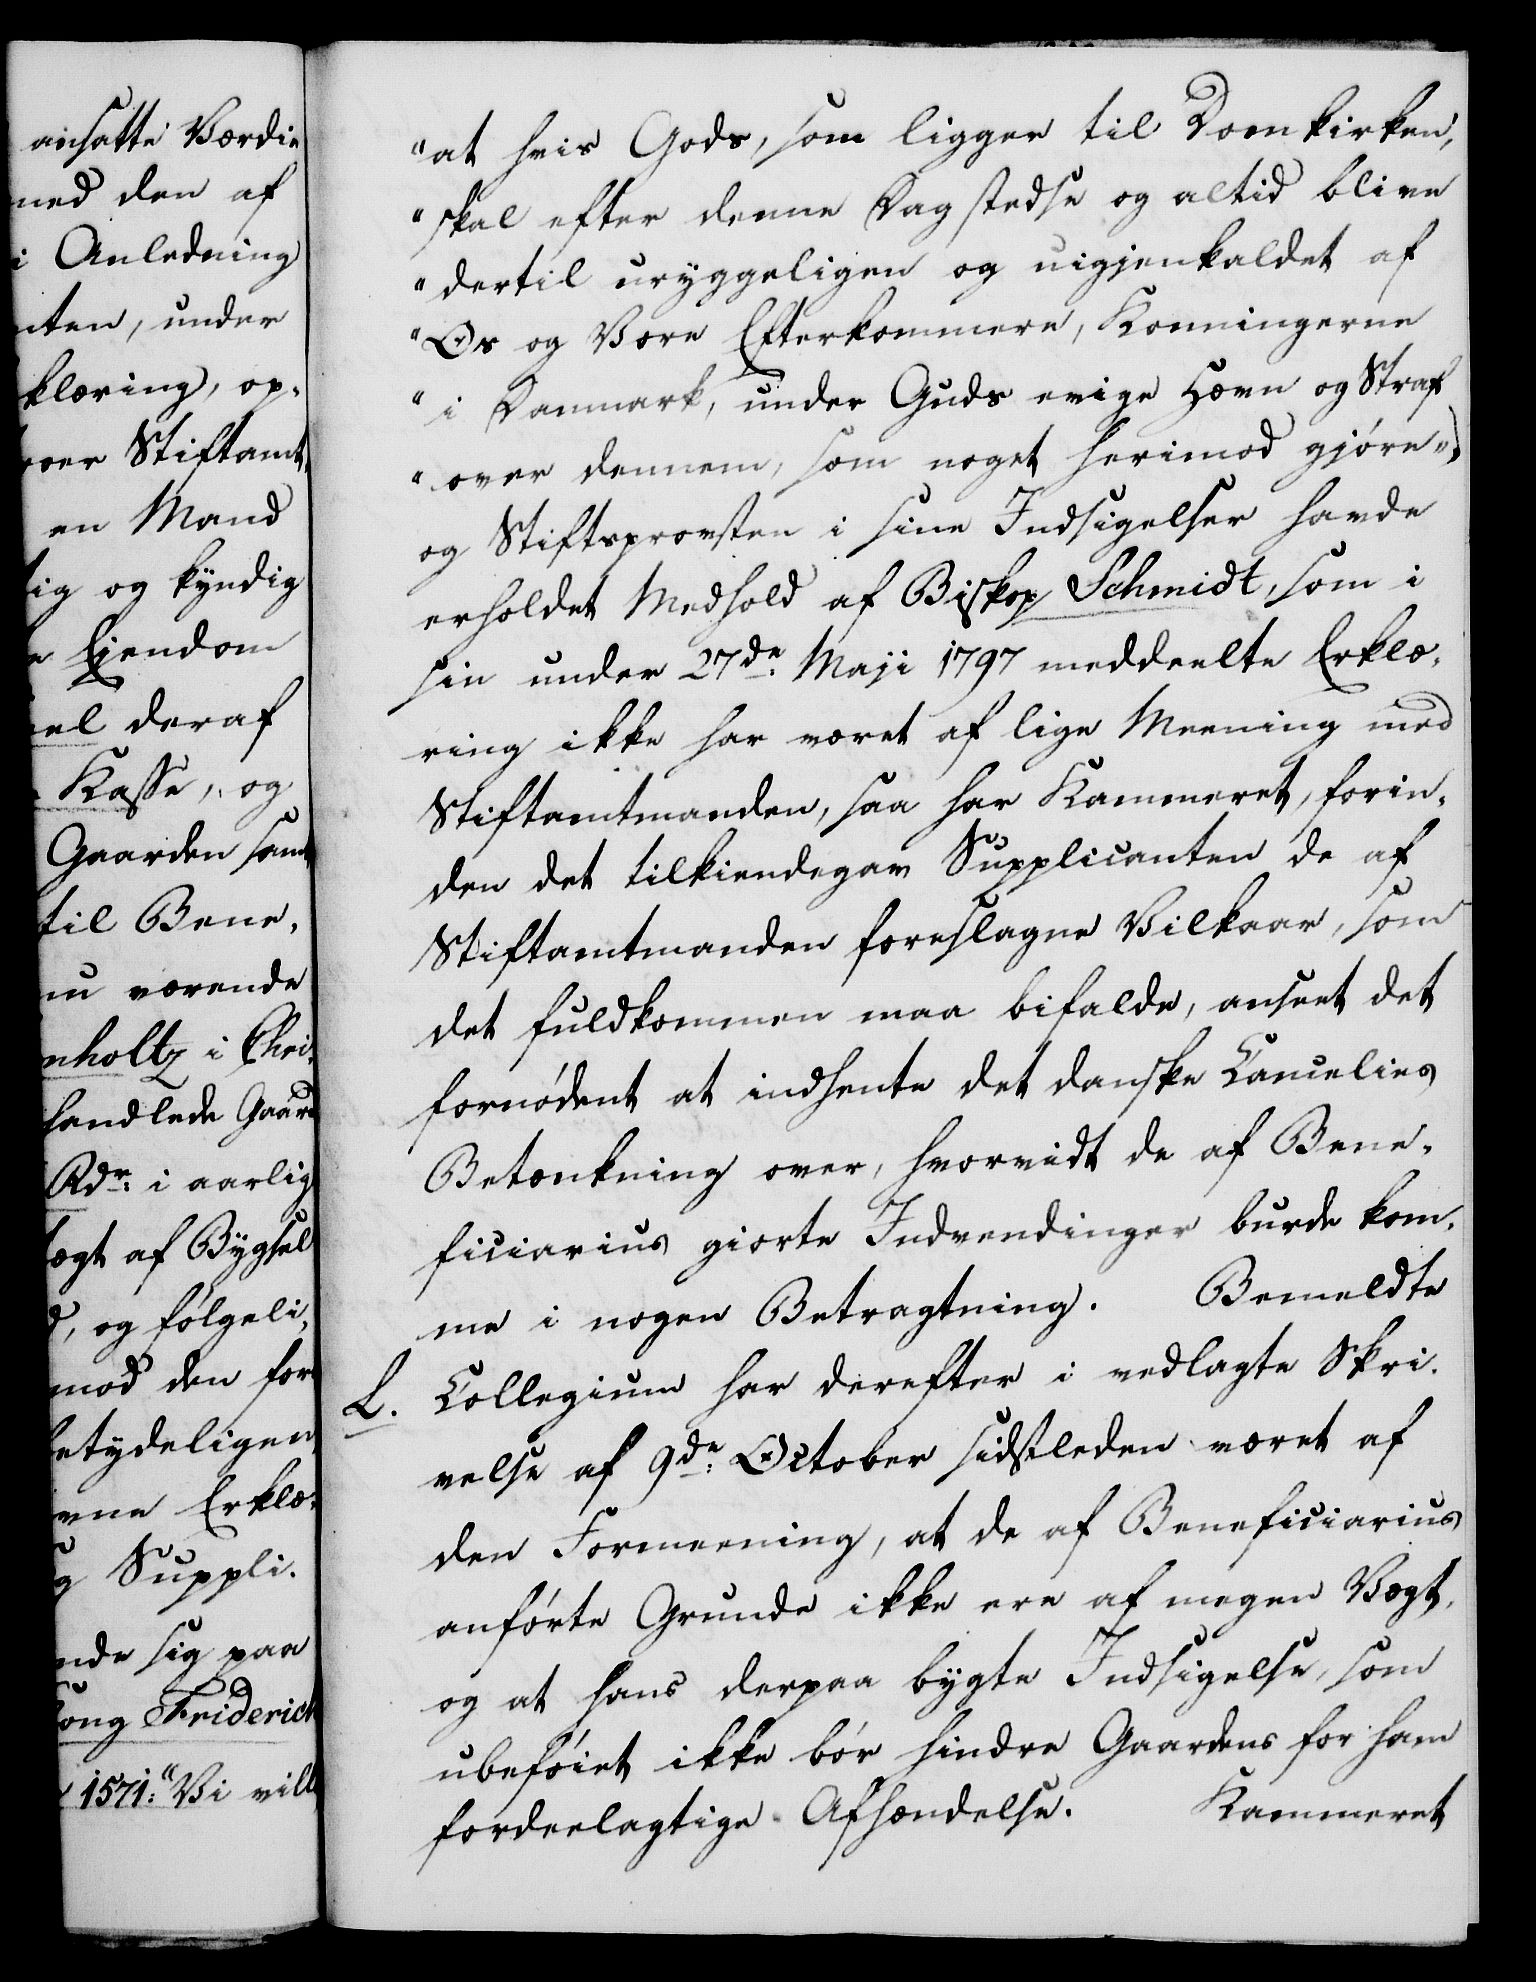 ansatte Værdie
med den af
i Anledning
nten, under
klæring, op-
oer Stiftamt
en Mand
tig og kyndig
e Ejendom
el deraf
Kasse, og
Gaarden samt
til Bene-
nu værende
nholtz i Chri-
handlede Gaard
Rdr: i aarlig
ægt af Bygsel
d, og følgeli-
mod den for
betydeligen
vne Erklæ-
g Suppli-
nde sig paa
Kong Friderich
1571: "Vi vill
"at hvis Gods, som ligger til Domkirken,
"skal efter denne Dag stedse og altid blive
"dertil uryggeligen og uigjenkaldet af
"Os og Vore Efterkommere, Konningerne
"i Danmark, under Guds evige Hævn og Straf
"over dennem, som noget herimod gjøre")
og Stiftsprovsten i sine Indsigelser havde
erholdet Medhold af Biskop Schmidt, som i
sin under 27de Maji 1797 meddeelte Erklæ-
ring ikke har været af lige Meening med
Stiftamtmanden, saa har Kammeret, forin-
den det tilkiendegav Supplicanten de af
Stiftamtmanden foreslagne Vilkaar, som
det fuldkommen maa bifalde, anseet det
fornødent at indhente det danske Cancelies
Betænkning over, hvorvidt de af Bene-
ficiarius giorte Indvendinger burde kom-
me i nogen Betragtning. Bemeldte
L. Collegium har derefter i vedlagte Skri-
velse af 9de October sidstleden været af
den Formeening, at de af Beneficiarius
anførte Grunde ikke ere af megen Vægt,
og at hans derpaa bygte Indsigelse, som
ubeføiet ikke bør hindre Gaardens for ham
fordeelagtige Afhændelse. Kammeret